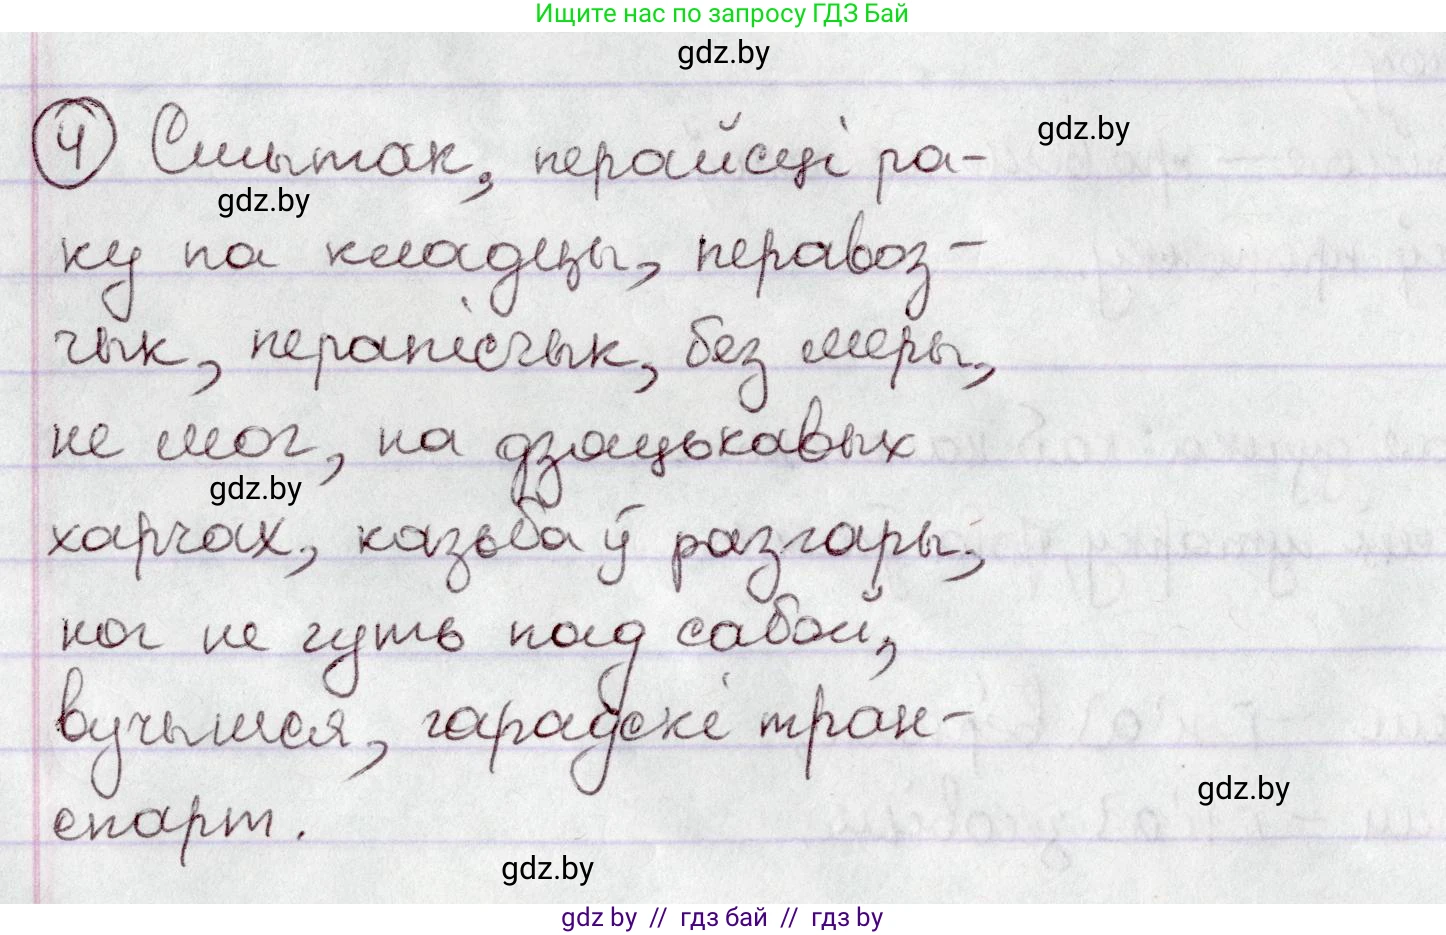 Ищите нас по запросу ГДЗ Бай
gdz.by
④ Смытак, перайсці ра-
gdz.by
gdz.by
ку па кладцы, перавоз-
чык, перапісчык, без меры,
не мог, на дзяцькавых
gdz.by
харчах, казьба ў разгары,
ног не чуть пад сабой,
вучымся, гарадскі тран-
gdz.by
спарт.
gdz.by
gdz by // гдз бай // гдз by